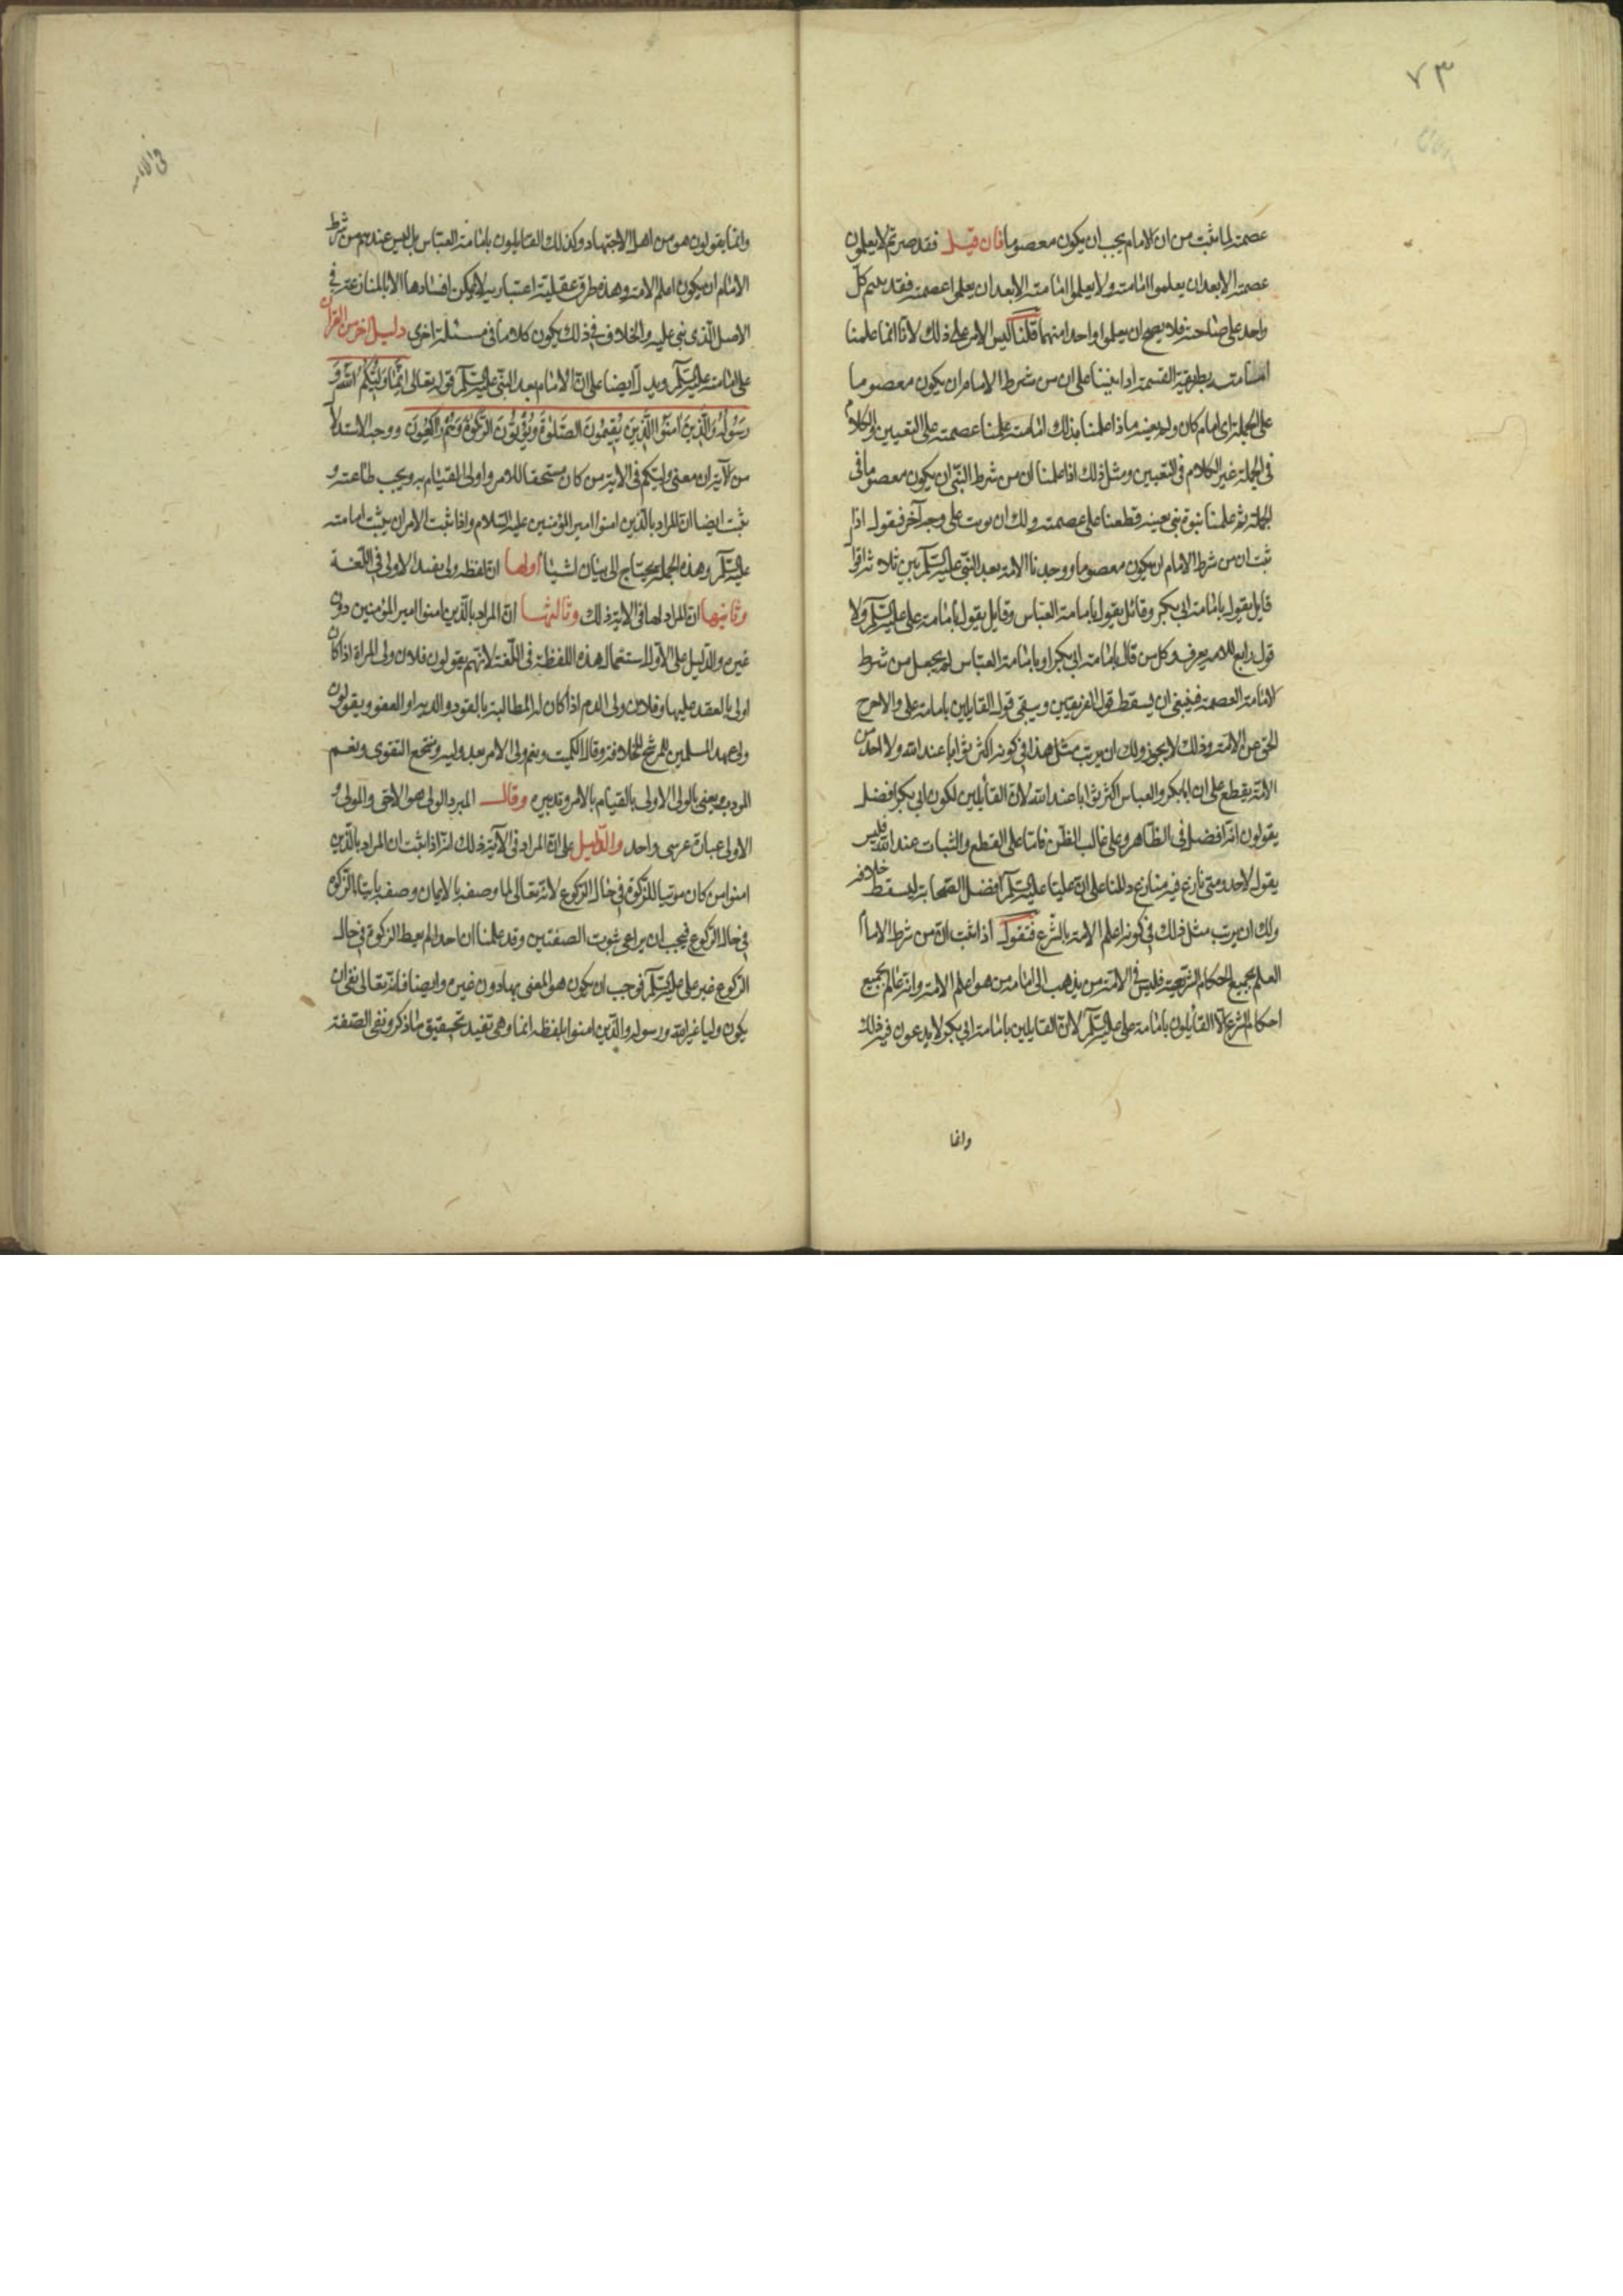 ٧٣
عصمته لما ثبت من ان الامام يجب ان يكون معصوما فان قيل فقد صرتم لا يعلمون
عصمته الا بعد ان يعلموا امامته ولا يعلموا امامته الا بعد ان يعلموا عصمته فقد بنيتم كل
واحد على صاحبه فلا يصح ان يعلموا واحدا منهما قلنا ليس الامر على ذلك لانا انما علمنا
امامته بطريقة القسمة اذا بنينا على ان من شرط الامام ان يكون معصوما
على الجملة اى امام كان ولا بعينه فاذا علمنا بذلك امامته علمنا عصمته على التعيين والكلام
فى الجملة غير الكلام فى التعيين ومثل ذلك اذا علمنا ان من شرط النبى ان يكون معصوما فى
الجملة ثم علمنا نبوة نبى بعينه قطعنا على عصمته ولك ان يرتب على وجه آخر فيقول اذا
ثبت ان من شرط الامام ان يكون معصوما ووجدنا الامة بعد النبى عليه السلام بين ثلاثة اقوال
قايل يقول بامامة ابى بكر وقائل يقول بامامة العباس وقايل يقول بامامة على عليه السلام ولا
قول رابع للامة يعرف وكل من قال بامامة ابى بكر او بامامة العباس لم يجعل من شرط
الامامة العصمة فينبغى ان يسقط قول الفريقين ويبقى قول القايلين بامامة على والا خرج
الحق عن الامة وذلك لا يجوز ولك ان يرتب مثل هذا فى كونه اكثر ثوابا عند الله ولا احد من
الامة يقطع على ان ابا بكر والعباس اكثر ثوابا عند الله لان القائلين لكون ابى بكر افضل
يقولون انه افضل فى الظاهر وعلى غالب الظن فاما على القطع والثبات عند الله فليس
يقول لاحد ومتى نازع فيه منازع دللنا على ان عليا عليه السلام افضل الصحابة ليسقط خلافه
ولك ان يرتب مثل ذلك فى كونه اعلم الامة بالشرع فنقول اذا ثبت ان من شرط الامام
العلم بجميع احكام الشريعة فليس فى الامة من يذهب الى امامة من هو اعلم الامة وانه عالم بجميع
احكام الشرع الا القائلون بامامة على عليه السلام لان القايلين بامامة ابى بكر لا يدعون فيه ذلك
وانما
وانما يقولون هو من اهل الاجتهاد وكذلك القايلون بامامة العباس بل ليس عندهم من شرط
الامام ان يكون اعلم الامة وهذه طرق عقلية اعتبارية لا يمكن افسادها الا بالمنازعة فى
الاصل الذى بنى عليه والخلاف فى ذلك يكون كلاما فى مسئلة اخرى دليل اخر من القران
على امامته عليه السلام ويدل ايضا على ان الامام بعد النبى عليه السلام قوله تعالى اِنَّمَا وَلِيُّكُمُ اللهُ وَ
رَسُولُهُ وَالَّذِينَ آمَنُوا الَّذِينَ يُقِيمُونَ الصَّلٰوةَ وَيُؤْتُونَ الزَّكٰوةَ وَهُمْ رٰاكِعُونَ ووجه الاستدلال
من الآية ان معنى وليكم فى الاية من كان مستحقا للامر واولى القيام به ويجب طاعته و
ثبت ايضا ان المراد بالذين امنوا امير المؤمنين عليه السلام واذا ثبت الامران يثبت امامته
عليه السلام وهذه الجملة يحتاج الى بيان اشياء اولها ان لفظه ولى يفيد الاولى فى اللغة
وثانيها ان المراد بها فى الاية ذلك وثالثها ان المراد بالذين امنوا امير المؤمنين دون
غيره والدليل على الاول استعمال هذه اللفظة فى اللغة لانهم يقولون فلان ولى المراة اذا كان
اولى بالعقد عليها وفلان ولى الدم اذا كان له المطالبة بالقود والدية او العفو ويقولون
ولى عهد المسلمين للمرشح للخلافة وقال الكميت ونعم ولى الامر بعد وليه ومنتجع التقوى ونعم
المودب يعنى بالولى الاولى بالقيام بالامر وتدبيره وقال المبرد الولى هو الاحق والمولى و
الاولى عبارة عن شىء واحد والدليل على ان المراد فى الآية ذلك انه اذا ثبت ان المراد بالذين
امنوا من كان موتيا للزكوة فى حال الركوع لانه تعالى لما وصفه بالايمان وصفه بايتاء الزكوة
فى حال الركوع فيجب ان يراعى ثبوت الصفتين وقد علمنا ان احدا لم يعط الزكوة فى حال
الركوع غير على عليه السلام فوجب ان يكون هو المعنى بها دون غيره وايضا فانه تعالى نفى ان
يكون وليا غير الله ورسوله والذين امنوا بلفظه انما وهى تفيد تحقيق ما ذكر ونفى الصفة